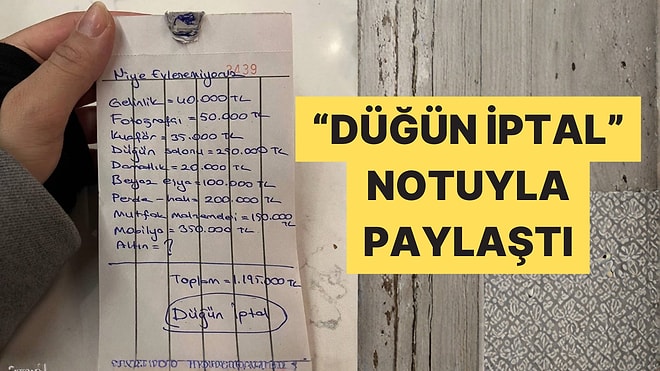 Niye Evlenemiyoruz
Gelinlik = 40.000 TL
Fotoğrafçı = 50.000 TL
Kuaför = 35.000 TL
Düğün salonu = 250.000 TL
Damatlık = 20.000 TL
Beyaz eşya = 100.000 TL
Perde-halı = 200.000 TL
Mutfak malzemeleri = 150.000 TL
Mobilya = 350.000 TL
Altın = ?
Toplam = 1.195.000 TL
Düğün iptal
“DÜĞÜN İPTAL”
NOTUYLA
PAYLAŞTI